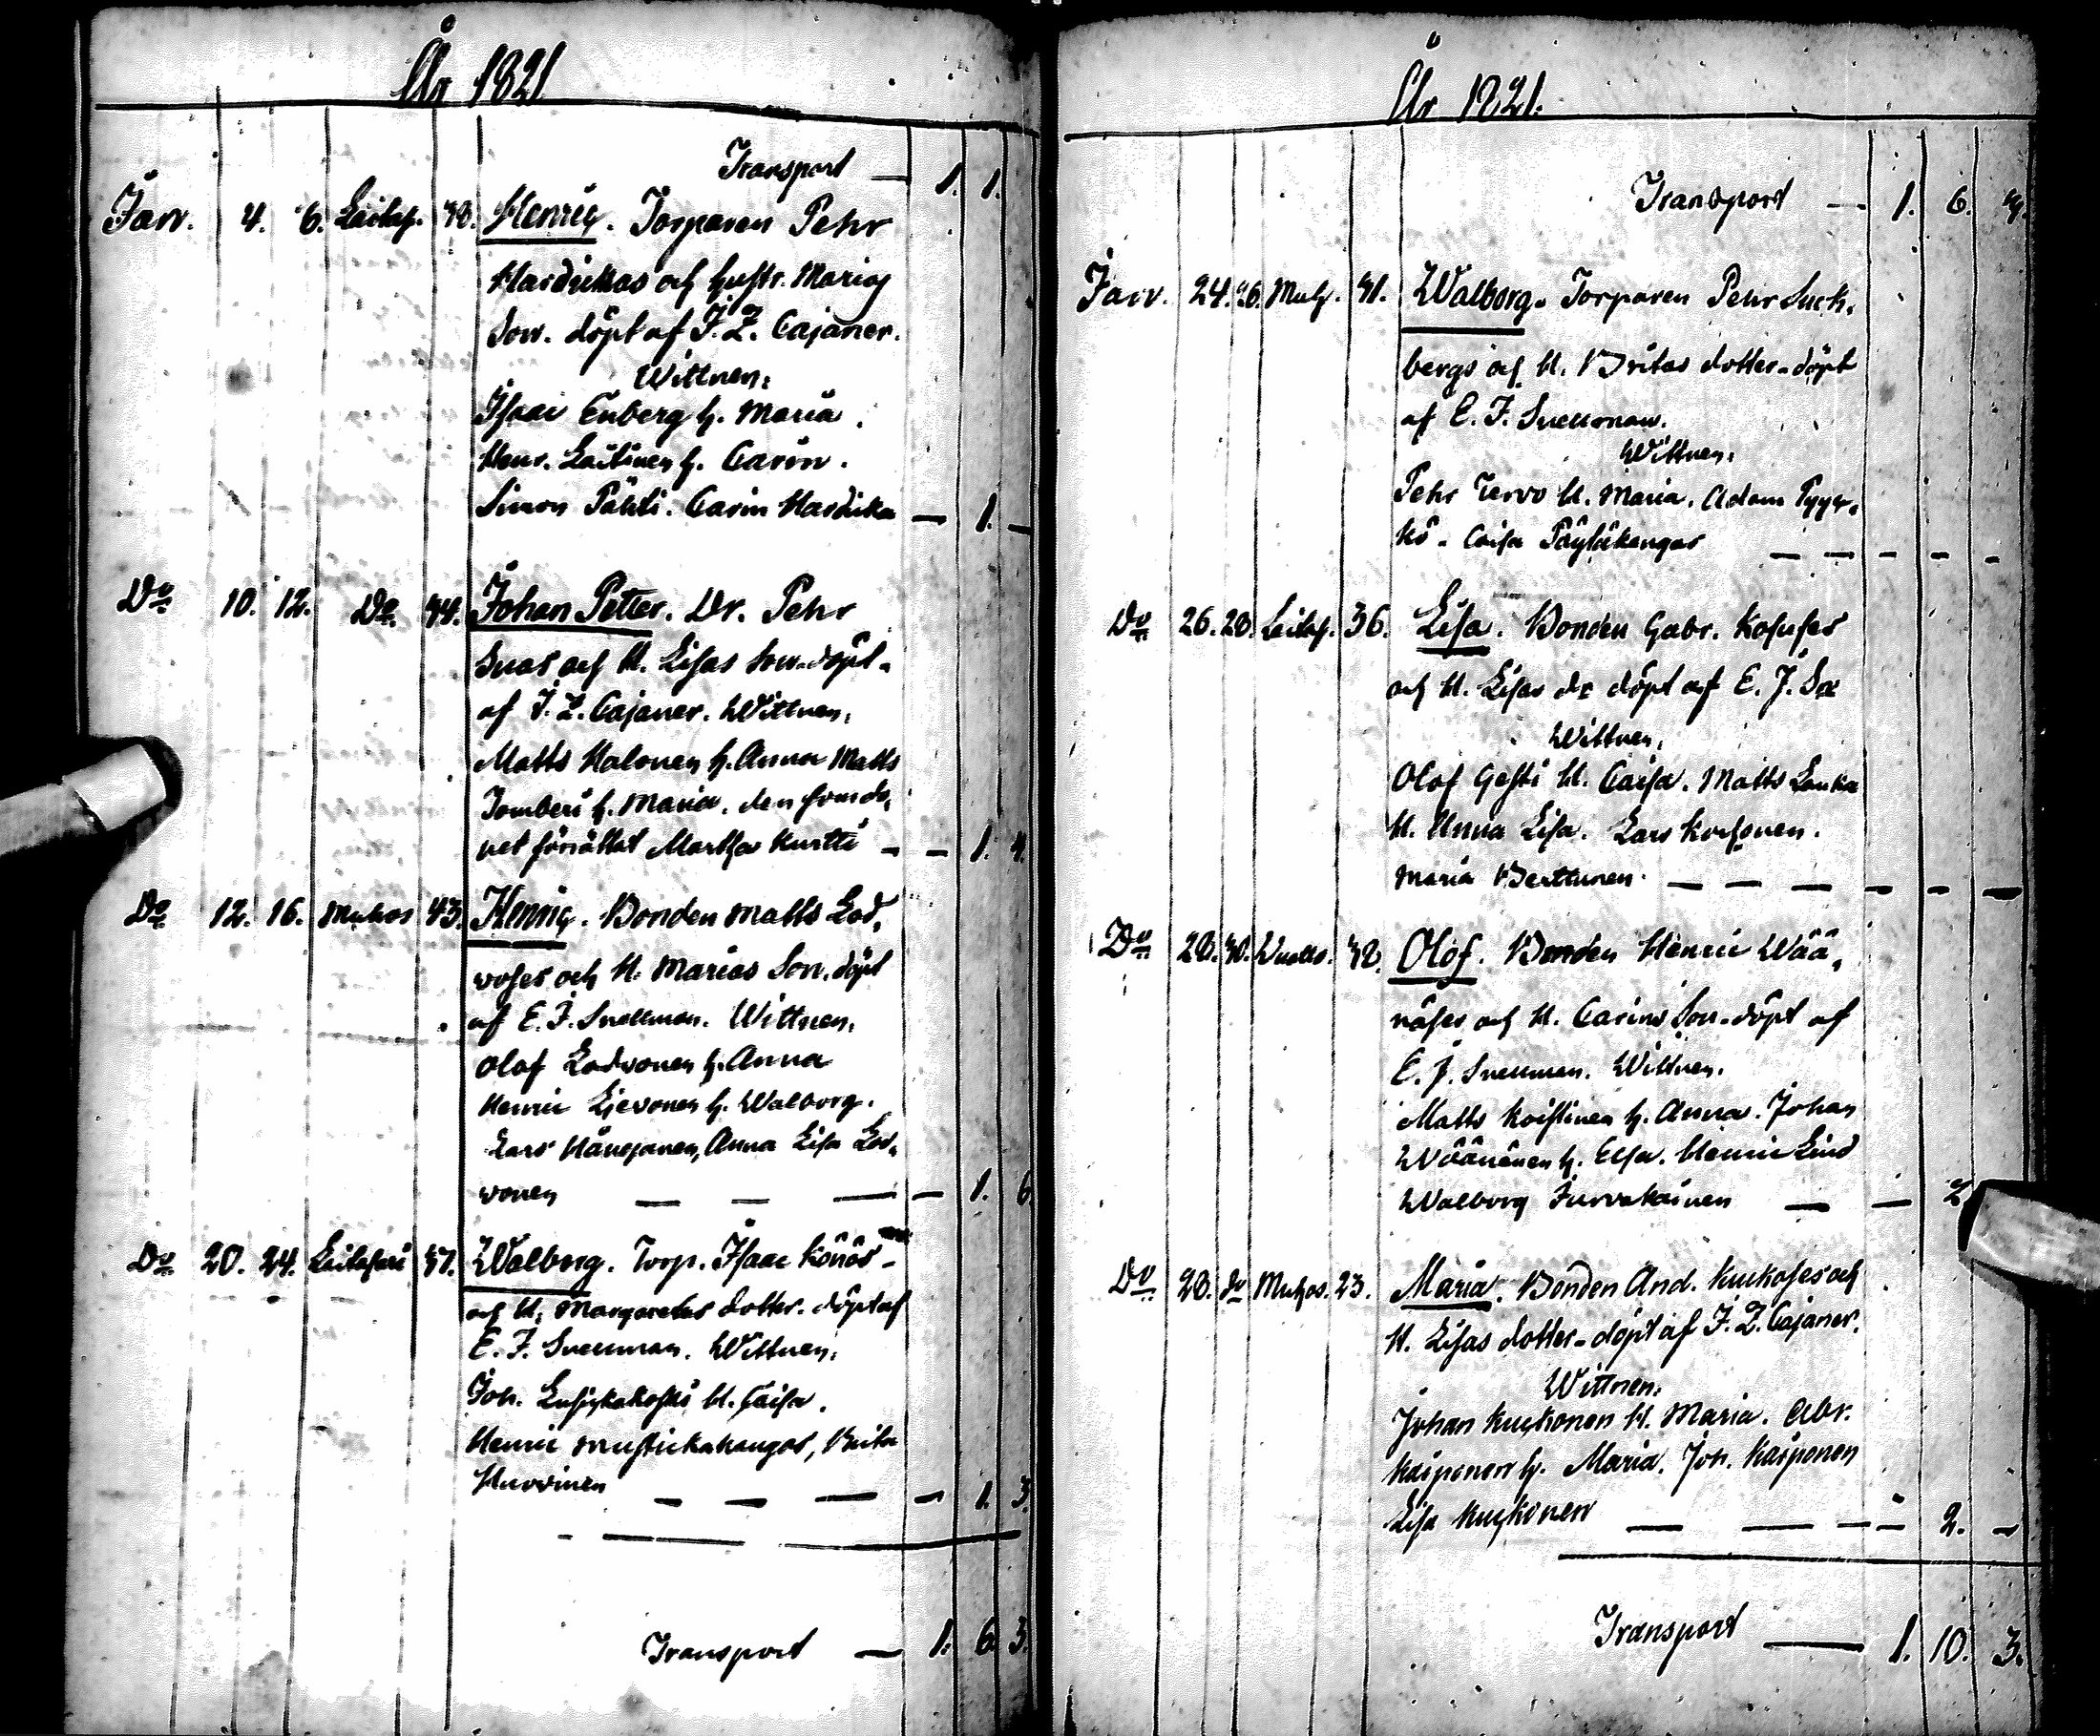 År 1821
Transport — 1. 1.
Janv. 4. 6. Laitas. 32. Henric. Torparen Pehr
Hardikkas och hustr. Marias
Son. döpt af J. Z. Cajaner.
Wittnen:
Isaac Enberg h. Maria.
Henr. Laitinen h. Carin.
Simon Pähti. Carin Hardikka — 1. —
Do 10. 12. Do. 34. Johan Petter. Dr. Pehr
och H. Lisas Son. döpt
af J. Z. Cajaner. Wittnen,
Matts Halonen h. Anna Matts
h. Maria.
Martha Kurtti — — 1. 4.
Do 12. 16. Muhos 43. Henric. Bonden Matts Lod,
woses och H. Marias Son. döpt
af E. J. Snellman. Wittnen,
Olof Lodvonen h. Anna
Henric h. Walborg.
Lars Anna Lisa Lod,
vonen — — — — 1. 6
Do 20. 24. 37. Walborg. Torp. Isaac Könös
och H. Margaretas dotter. döpt af
E. J. Snellman. Wittnen,
Joh. H. Caisa.
Henric Mustickakangas, Brita
Hurvinen — — — — 1. 3.
Transport — 1. 6 3.
År 1821.
Transport — 1. 6.
Janv. 24. 26. Muh. 31. Walborg. Torparen Pehr Suck,
bergs och H. Britas dotter. döpt
af E. J. Snellman.
Wittnen,
Pehr Tervo H. Maria. Adam Pyyk,
kö. Caisa Pöyläkangas — — — — —
Do 26. 28. Laitas. 36. Lisa. Bonden Gabr. Kososes
och H. Lisas dr döpt af E. J. Sn
Wittnen,
Olof H. Caisa. Matts Lauka
H. Anna Lisa. Lars
Maria Berttunen. — — — — — —
Do 28. 30. 32. Olof. Bonden Henric Wää,
näses och H. Carins Son. döpt af
E. J. Snellman. Wittnen.
Matts Koistinen h. Anna. Johan
Wäänänen h. Elsa. Henric Lind
Walborg Jurvakainen — — 2
Do 28. do Muhos. 23. Maria. Bonden And. Kukkoses och
H. Lisas dotter. döpt af J. Z. Cajaner.
Wittnen,
Johan Kukkonen H. Maria. Abr.
Karponen h. Maria. Joh. Karponen
Lisa Kukkonen — — — — 2. —
Transport — 1. 10. 3.